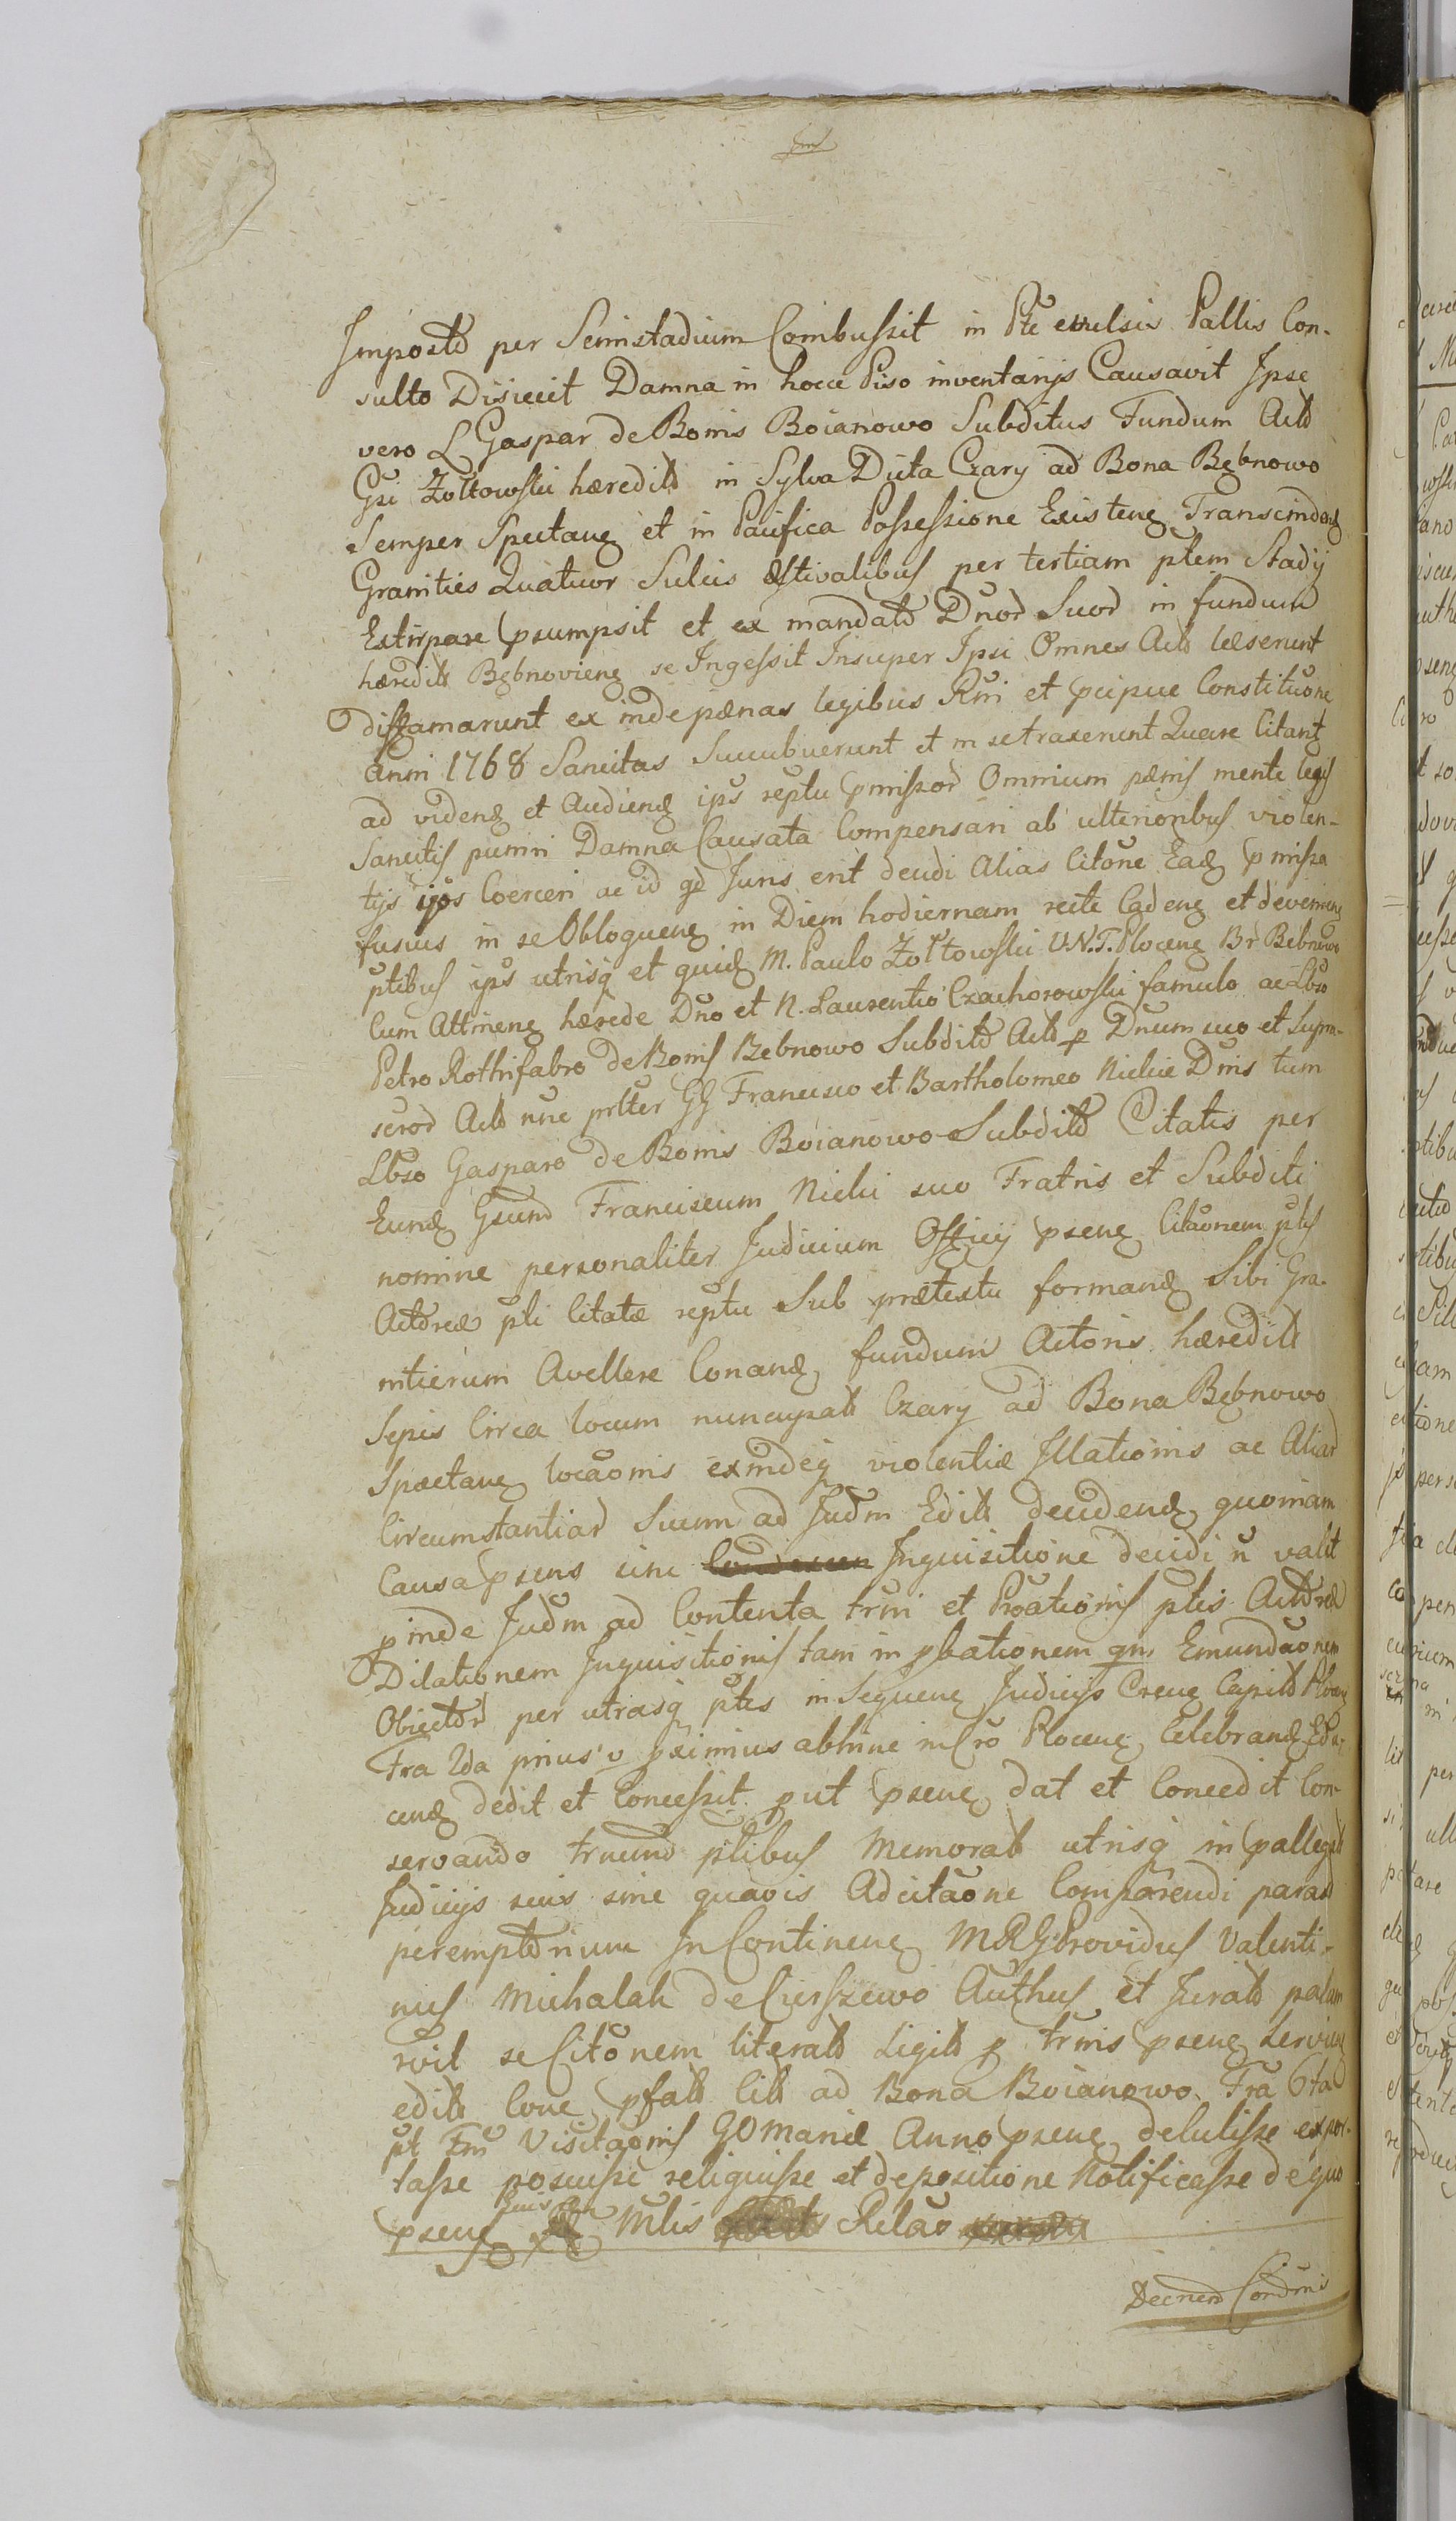 Impostō per Semistadium Combussit in Pte evulsis Pallis Con-
sulto Disiecit Damna in hocce Piso inventarijs Causavit Ipse
vero L Gaspar de Bonis Boianowo Subditus Fundum Actō
Gsi Zołtowski hæreditō in Sylva Dicta Czary ad Bona Bębnowo
Semper Spectanȝ et in Pacifica Possessione Existenȝ Transcindenȝ
Granities Quatuor Sulcis æstivalibus per tertiam ptem Stadij
Extirpare psumpsit et ex mandatō Dnorō Suorō in fundum
hæreditō Bębnovienȝ se Ingessit Insuper Ipsi Omnes Actō læserunt
diffamarunt ex inde pænas legibus Rni et pcipue Constituone
Anni 1768 Sancitas Succubuerunt et in se traxerunt Quare Citantȝ
ad videnȝ et Audienȝ ips reptu pmissorō Omnium pænis mente legis
Sancitis puniri Damna Causata Compensari ab ulterioribus violen-
tijs ipos Coerceri ac id qd Juris erit decidi Alias Citone Eadȝ pmissa
fusius in se Obloquenȝ in Diem hodiernam recte Cadenȝ et devenienȝ
ptibus ips utrisqȝ et quidȝ M. Paulo Zołtowski V.N.T. Plocenȝ Br Bebnowo
Cum Attinenȝ hærede Dno et N. Laurentio Czachorowski famulo ac Lbso
Petro Rothifabro de Bonis Bebnowo Subditō Actō p Dnum suo et Supra-
scrorō Actō nnc prlter GG Francisco et Bartholomeo Nickie Dnis tum
Lbso Gasparo de Bonis Boianowo Subditō Citatis per
Eundȝ Gsum Franciscum Nicki suo Fratris et Subditi
nomine personaliter Judicium Officij psenȝ Citaonem ptis
Actoreæ pti Citatæ reptu Sub prætextu formandȝ Sibi Gra-
nitierum Avellere Conandȝ fundum Actoris hæreditō
Sepis Circa locum nuncupatō Czary ad Bona Bębnowo
Spæctanȝ locaonis exindeqȝ violentiæ Illationis ac Aliarō
Circumstantiarō Suum ad Judm Editō decidendȝ quoniam
Causa psens sine Inquisitione decidi n valit
pinde Judm ad Contenta trmi et Proationis ptis Actoreæ
Dilationem Inquisitionis tam in pbationem qm Emundaonem
Obiectorō per utrasqȝ ptes in Sequenȝ Judicijs Crenȝ Capitō Plocenȝ
Fra 2da prius'v pximius abhinc in Cro Plocenȝ Celebrandȝ
cendȝ dedit et Concessit put psenȝ dat et Concedit Con-
servando trmum ptibus Memoratō utrisqȝ in pallegatō
Judicijs suis sine quavis Adcitaone Comparendi paratō
peremptorium In Continenȝ MRG Providus Valenti-
nus Michalak de Cierszewo Authus et Juratō palam
rvit se Citonem literatō Ligitō p trmis psenȝ Servienȝ
editō Conc pfatō Citō ad Bona Boianowo Fra 6ta
pt Fm Visitaonis BVMariæ Anno psenȝ detulisse expor-
tasse posuisse reliquisse et depositione Notificasse de quo
psenȝ Mlis Relao
Decretō Condnis